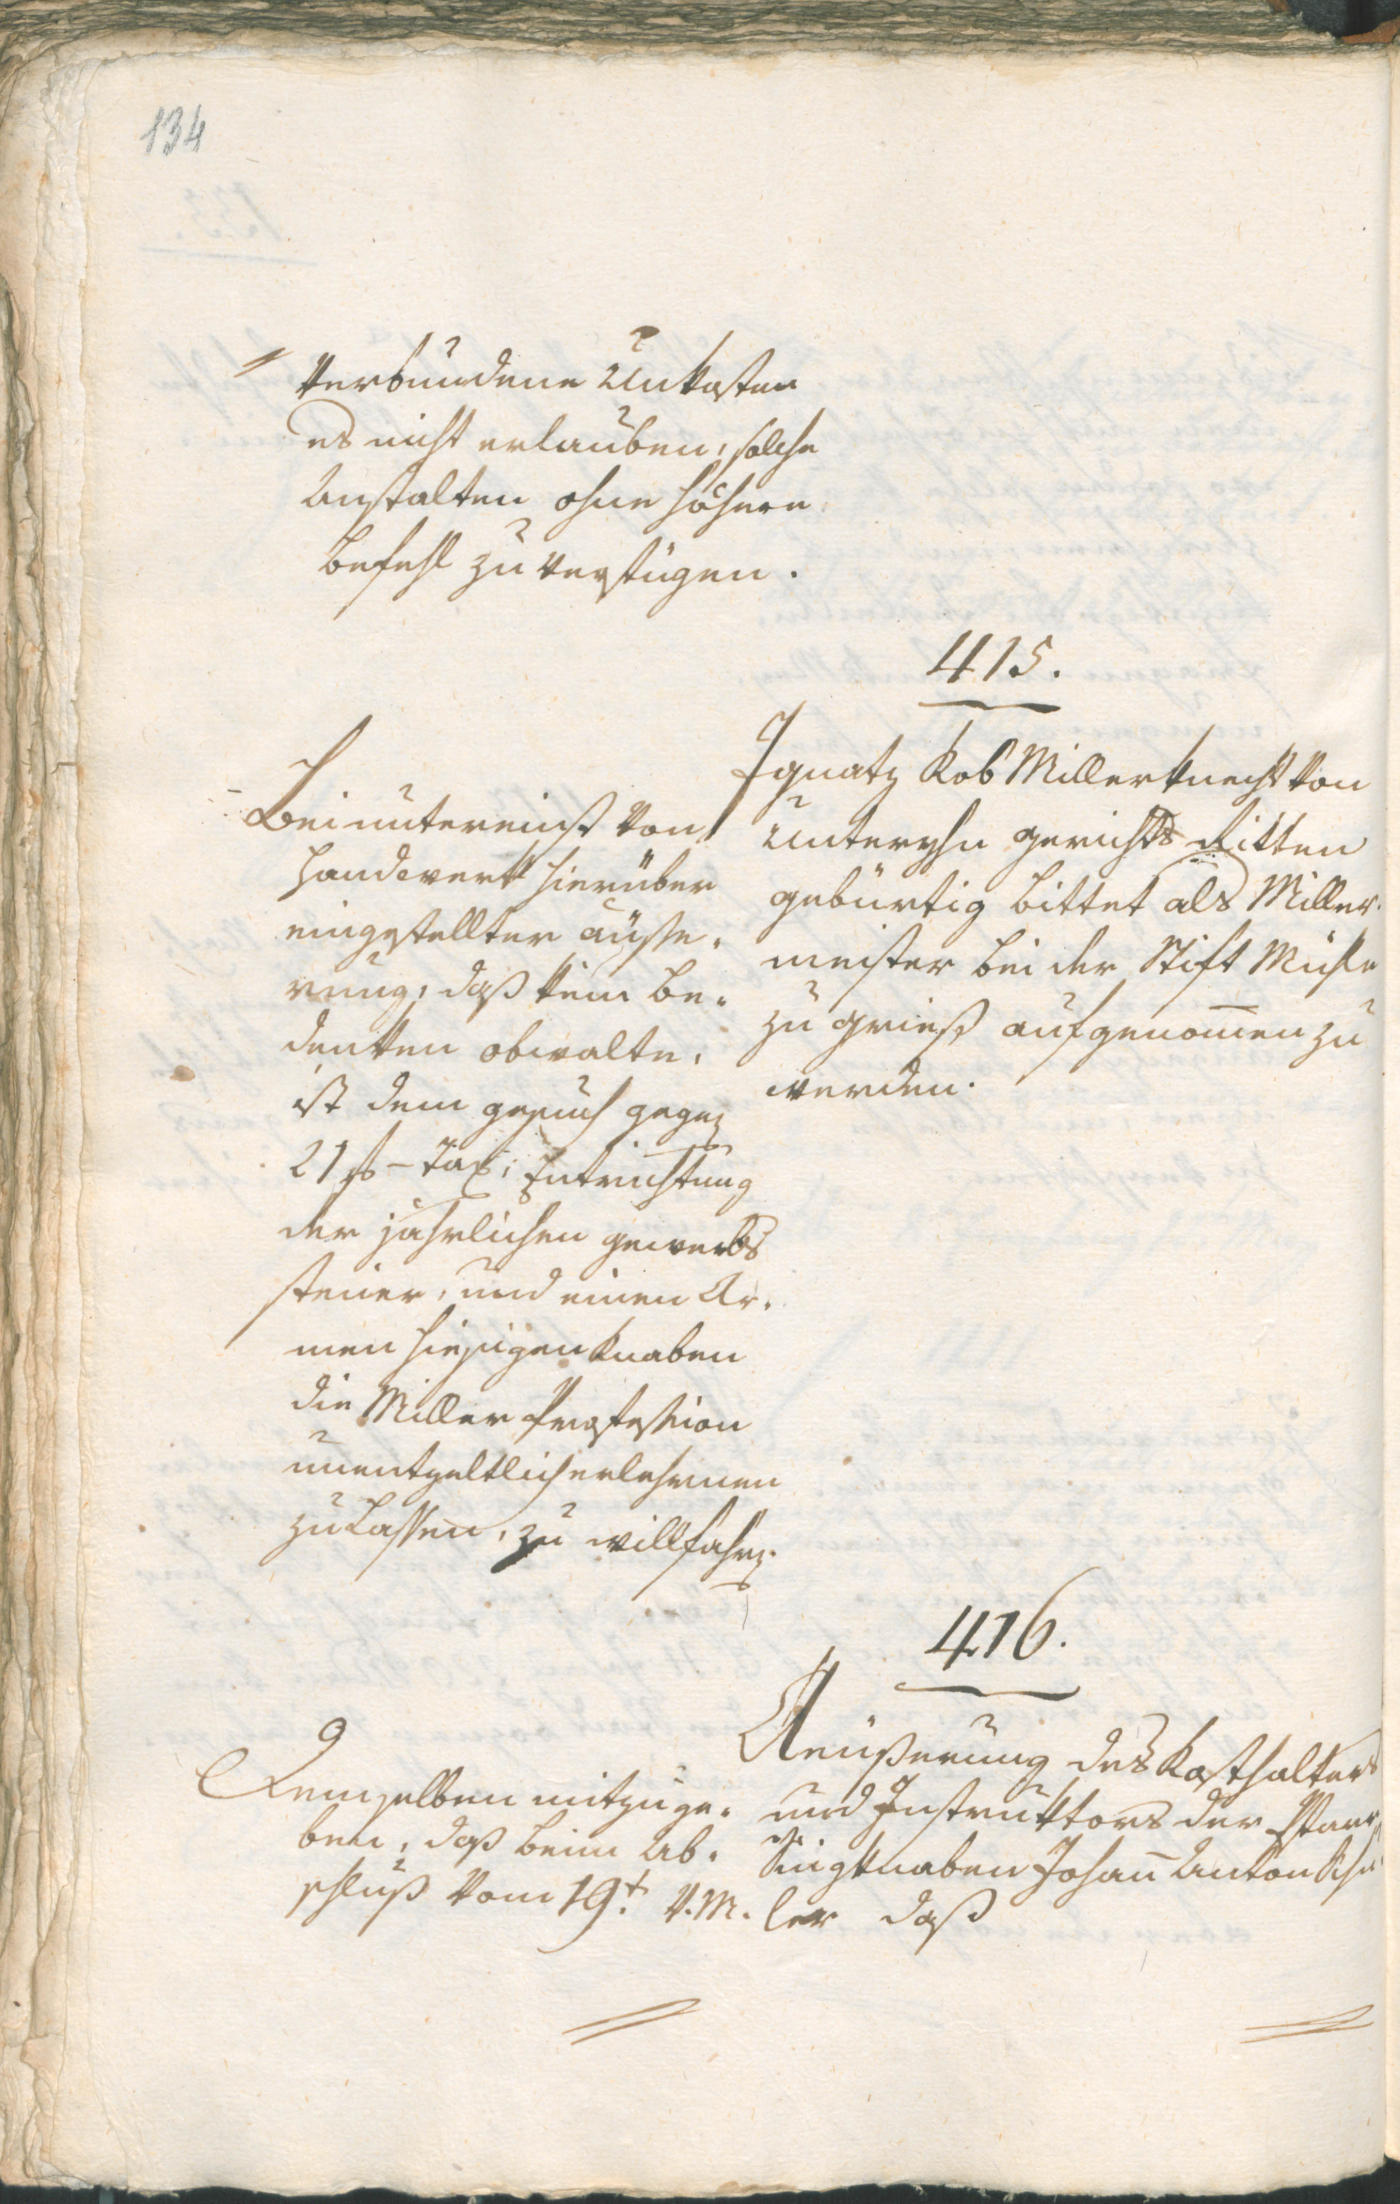 134
verbundene Unkosten
es nicht erlauben, solche
Anstalten ohne höhere
Befehl zu verfügen.
415.
Ignatz Kob Millerknecht von
Unterinn gerichts Ritten
gebürtig bittet als Miller-
meister bei der Stift Mühle
zu Grieß aufgenom̄en zu
werden.
Bei untereinst von
Handwerk hierüber
eingestellter äusse-
rung, daß kein be-
denken obwalte,
ist dem gesuch gegen
21 f – Tax, Entrichtung
der jährlichen gewerbs
steuer, und einen Ar-
men hiesigen Knaben
die Miller Profession
unentgeltlich erlehrnen
zu Lassen, zu willfahren.
416.
Aeußerung des Kosthalters
und Instruktors der Pfarr
Singknaben Johan̄ Anton Schu
ler daß
Demselben mitzuge-
ben, daß beim Ab-
schluß vom 19.t v. M.